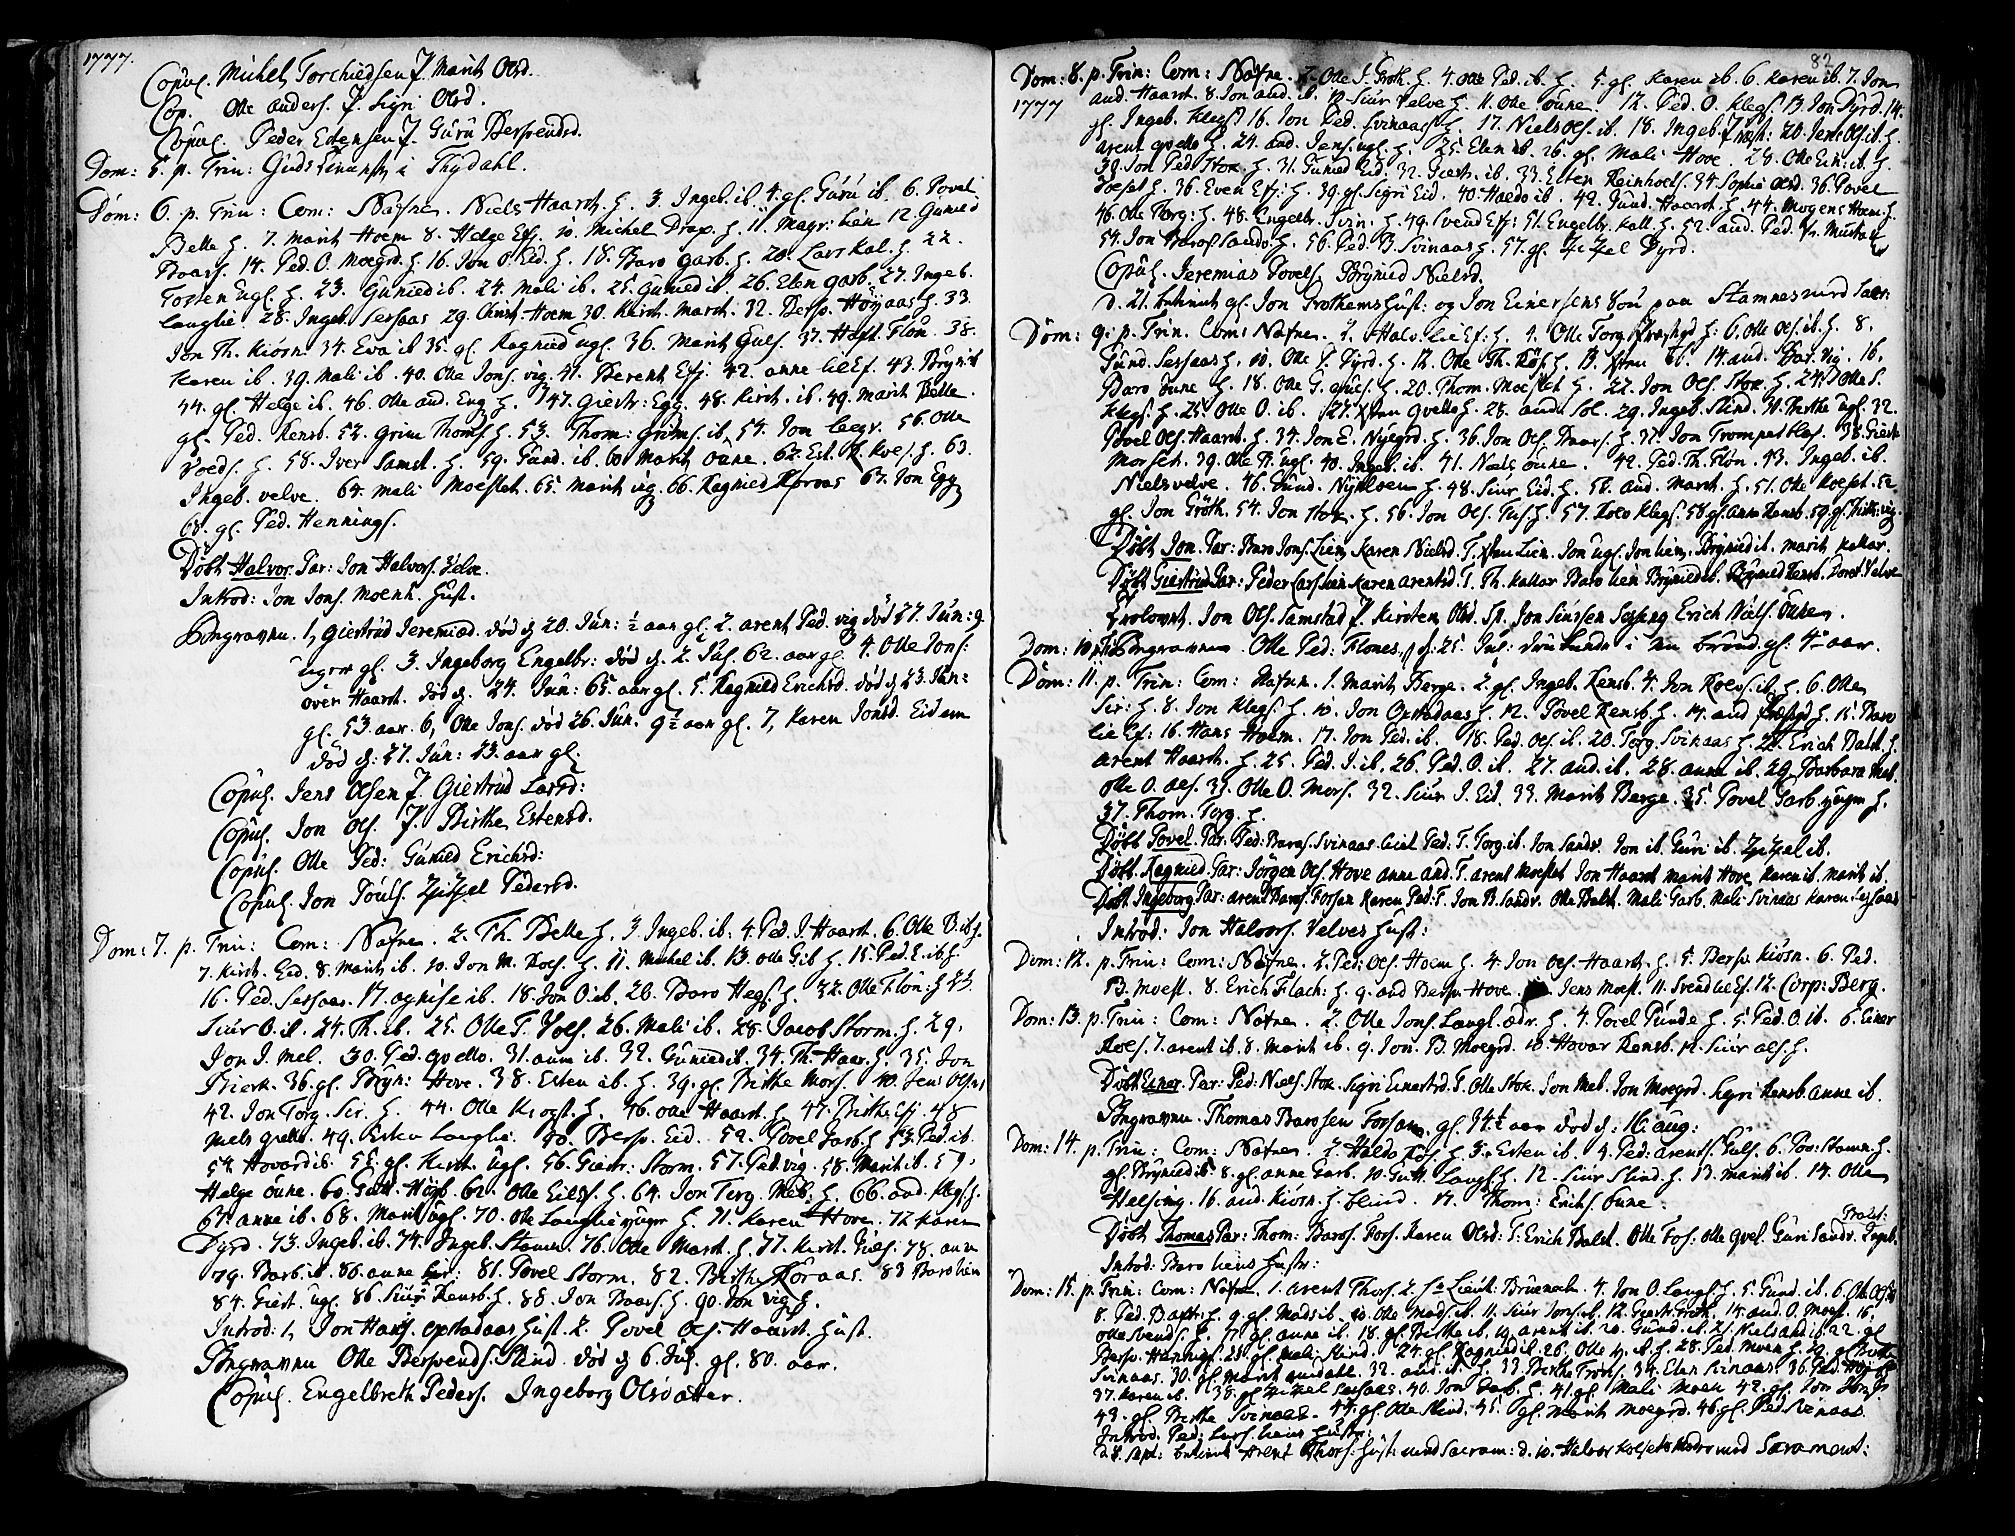 1777.
Copul. Michel Torchildsen f. Marit Olsd.
Cop. Olle Anders. f. Sigri Olsd.
Copul. Peder Estensen f. Guru Bersvendsd.
Dom: 5. p. Trin: Gudstieneste i Thydahl.
Dom: 6. p. Trin: Com: Nafne. Niels Haard. h. 3. Ingeb. ib. 4. gl. Guru ib. 6. Povel
Belle h. 7. Marit Hoem 8. Helge Eff. 10. Michel Drap. h. 11. Magr: Lien 12. Guneld
Baars. 14. Ped. O. Moegrd. h. 16. Jon O. Eid. h. 18. Baro Garb. h. 20. Lars Kal. h. 22.
Tosten Ugl. h. 23. Guniedib. 24. Mali ib. 25. Guniedib. 26. Elen Garb. 27. Ingeb.
Langlie. 28. Ingeb. Sersaas 29. Christ. Hoem 30. Kirst. March. 32. Bersv. Høyaas h. 33.
Jon Th. Kiösn. 34. Eva ib. 35. gl. Ragnied Ugl. 36. Marit Guls. 37. Haft. Flön. 38.
Karen ib. 39. Mali ib. 40. Olle Jons. vig. 41. Berent Eff. 42. Anne lie Ef. 43. Brynild
44. gl. Helge ib. 46. Olle And. Eng h. 47. Giestr: Egg. 48. Kirst. ib. 49. Marit Belle.
gl. Ped. Rensb. 52. Grim Thoms. h. 53. Thom: Grims. ib. 54. Jon Legr. 56. Olle
Voeds. h. 58. Iver Samst. h. 59. Gund. ib. 60. Marit Öune. 62. Est. Koes. h. 63.
Ingeb. Velve. 64. Mali Moeslet. 65. Marit vig. 66. Ragnied Køraas 67. Jon Egg
68. gl. Ped. Hennings.
Døbt Halvor. Par: Jon Halvors. Velve.
Introd: Jon Jons. Moenh. Hust.
Begraven. 1, Giertrud Jeremiæd. død d. 20. Jun: ½ aar gl. 2. Arent Ped. vig død 27 Jun: 9
uger gl. 3. Ingeborg Engelbr: død d. 2. Jul. 62. aar gl. 4. Olle Jons:
over Haard. død d. 24. Jun: 65. aar gl. 5. Ragnild Erichsd. død d. 23. Jun:
gl. 53. aar. 6, Olle Jons. død 26. Jun. 9½ aar gl. 7, Karen Jonsd. Eidem
død d: 27. Jun: 23. aar gl.
Copul. Jens Olsen f. Giertrud Larsd:
Copul. Jon Ols. f. Birthe Estensd.
Copul. Olle Ped: Gunied Erichsd:
Copul. Jon Pouls. Zitzel Pedersd.
Dom: 7. p. Trin: Com: Nafne. 2. Th. Belle h. 3. Ingeb. ib: 4. Ped. J. Haard. 6. Olle B. ib. h.
7. Kirst. Eid. 8. Marit ib. 10. Jon M. Roes. h. 11. Michel ib. 13. Olle G. ib h. 15. Ped. E. ib. h
16. Ped. Sersaas. 17. Agnise ib. 18. Jon O. ib. 20. Baro Hegs. h. 22. Olle Flön: h 23
Siur O. il. 24. Th. ib. 25. Olle T. Vols. 26. Mali ib. 28. Jacob Storm. h. 29.
Jon J. Mel. 30. Ped. Qvello. 31. Anne ib. 32. Guniedib. 34. Th. Haar. h. 35. Jon
Bierk. 36. gl. Bryn: Hove. 38. Esten ib. h. 39. gl. Birthe Mors. 40. Jens Ols
42. Jon Torg. Sir. h. 44. Olle Krogst. h. 46. Olle Haard. h. 47. Birthe Eff. 48
Niels Qvello. 49. Esten Langlie. 50. Bersv. Eid. 52. Povel Garb. h 53. Ped. ib.
54. Hovardib. 55. gl. Kirst. Ugl. 56. Giertr: Storm. 57. Ped. vig. 58. Marit ib. 59.
Helge Öune. 60. Gutt. Høyb. 62. Olle Eids. h. 64. Jon Torg. Meb. h. 66. And. Klegs. h.
67. Anne ib. 68. Marit Ugl. 70. Olle Langlie yngr h. 71. Karen Hove. 72 Karen
Dyrd. 73. Ingeb. ib. 74. Ingeb. Stamn. 76. Olle March. h. 77. Kirst. Fiels. 78. Anne
79. Barb. ib. 80. Anne Ler: 81. Povel Storm. 82. Birthe Køraas. 83 Baro Lien
84. Giert. Ugl. 86. Siur Rensb. h. 88. Jon Baars. h. 90. Jon vig. h.
Introd: 1, Jon Hans. Opstadaas Hust. 2. Povel Ols. Haard. Hust.
Begraven Olle Bersvends. Slind. død d. 6. Jul. gl. 80. aar.
Copul. Engelbreth Peders. Ingeborg Olsdatter.
82
Dom: 8. p. Trin: Com: Nafne. 2. Olle J. Groth. h. 4. Olle Ped. ib. h. 5. gl. Karen ib. 6. Karen ib. 7. Jon
1777
And. Haard. 8. Jon And. ib. 10. Siur Velve h. 11. Olle Öune. 12. Ped. O. Klegs. 13. Jon Dyrd. 14.
gl. Ingeb. Klegs. 16. Jon Ped. Svinaas h. 17. Niels Ols. ib. 18. Ingeb. 20. Jens Ols. ib. h.
Arent Qvello h. 24. And. Jens. Ugl. h. 25. Elen ib. 26. gl. Mali Hove. 28. Olle Eich: ib. h.
30 Jon Ped. Stok. h. 31. Gunied Eid. 32. Giertr. ib. 33. Esten Reinhols. 34. Sophie Olsd. 36. Povel
Roeset h. 36. Even Eff: h. 39. gl. Sigri Eid. 40. Haldo ib. 42. Gund. Haard. h. 44. Mogens Hoem. h.
46. Olle Torg: h. 48. Engelbr. Svin. h. 49. Svend Eff: 51. Engelbr. Kall. h. 52. And. Ped.
54. Jon Baros. Sando. h. 56. Ped. B. Svinaas h. 57. gl. Zitzel Dyrd.
Copul. Jeremias Povels. Brynild Nielsd.
d. 21. betient gl. Jon Grothems Hust: og Jon Einersens Søn paa Stamnes med Sacr:
Dom: 9. p. Trin. Com: Nafne. 2. Halv. lie Ef. h. 4. Olle Torg. h. 6. Olle Ols. ib. h. 8.
Gund. Sersaas h. 10. Olle J. Dyrd. h. 12. Olle Th. Røs. h. 13. ib. 14. And. Bar. vig. 16.
Baro Öune h. 18. Olle G. Guls. h. 20. Thom. Moeslet h. 22. Jon Ols. Stok. h. 24. Olle S.
Klegs. h. 25. Olle O. ib. 27. Qvello h. 28. And. Sol. 29. Ingeb. Slind. 31. Birthe Ugl. 32.
Povel Ols. Haard. h. 34. Jon E. Nyegrd. h. 36. Jon Ols. Baars. h. 37. Jon Trompet Klos. 38. Giertr
Morsch. 39. Olle Th. Ugl. 40. Ingeb. ib. 41. Niels Öune. 42. Ped. Th. Flön. 43. Ingeb. ib.
Niels Velve. 46. Gund. Nykloen h. 48. Siur Eid. h. 50. And. March. h. 51. Olle Roeset. 52
gl. Jon Gröth. 54. Jon Stok. h. 56. Jon Ols. Fus. h. 57. Rolv Klegs. 58. gl. Anne Rensb. 59. gl. Birthe vig.
Døbt Jon. Par: Baro Jons. Lien, Karen Nielsd. T. Lien. Jon Ugl. Jon Lien. Brynied ib. Marit Kallar.
Døbt Giertrud Par: Peder Lars. Lien Karen Arentsd. T. Th. Kallar Baro Lien Brynied ib. Brynied Rensb. Dorot. Velve
Trolovet. Jon Ols. Samstad f. Kirsten Olsd. Sp. Jon Siursen Erich Niels. Öune.
Dom: 10 p. Trin: Begraven. Olle Ped: Flones, d: 25. Jul: druknede i en brønd. gl: 4 aar.
Dom: 11. p. Trin: Com: Nafne. 1. Marit Berge. 2. gl. Ingeb. Rensb. 4. Jon Roes. ib. h. 6. Olle
Sir: h. 8. Jon Klegs. h. 10. Jon Opstadaas h. 12. Povel Rensb. h. 14. And h. 15. Baro
lie Ef: 16. Hans Hoem. 17. Jon Ped. ib. 18. Ped. Ols. ib. 20. Torg. Svinaas h. 22. Erich Balst. h.
Arent Haard. h. 25. Ped. J. ib. 26. Ped. O. ib. 27. And. ib. 28. Anne ib. 29. Barbara Meb.
Olle O. Aes. 31. Olle O. Mors. 32. Siur J. Eid. 33. Marit Berge. 35. Povel Garb. yngre h.
37. Thom. Torg. h.
Døbt Povel. Par. Ped: Baros. Svinaas Ped: T. Torg. ib. Jon Sandv. Jon ib. Guri ib. Zitzel ib.
Døbt. Ragnied. Par: Jörgen Ols. Hove Anne And. T. Arent Moeslet Jon Haard Marit Hove, Karen ib. Marit ib.
Døbt Ingeborg Par: Arent Baros. Forsen Karen Ped: T. Jon B. Sandv. Olle Balst. Mali Garb. Mali Svinaas Karen Sersaas
Introd: Jon Halvors. Velves Hust:
Dom: 12. p. Trin: Com: Nafne. 2. Ped: Ols. Hoem h. 4. Jon Ols. Haard. h. 5. Bersv. Kiösn. 6. Ped.
B. Moesl. 8. Erich Flach: h. 9. And Bersv. Hove. Jens Moesl. 11. Svend lie Ef. 12. Corp: Berg.
Dom: 13. p. Trin: Com: Nafne. 2. Olle Jons. Langl. ædr. h. 4. Povel Gunde h. 5. Ped. O. ib. 6. Einer
Roes. 7. Arent ib. 8. Marit ib. 9. Jon B. Moegrd. 10. Hovar Rensb. 12. Siur Aes. h.
Døbt Einer. Par: Ped: Niels. Stok. Sigri Einersd. T. Olle Stok. Jon Meb. Jon Moegrd. Sigri Rensb. Anne ib.
Begraven. Thomas Barosen Forsem gl. 34½ aar død d: 16 Aug:
Dom: 14. p. Trin: Com: Nafne. 2. Haldo Røs. h. 3. Esten ib. 4. Ped: Arents. Guls. 6. Pov: Stamn. h.
gl. Brynied ib. 8. gl. Anne Garb. 10. Gutt. Langl. h. 12. Siur Slind. h. 13. Marit ib. 14. Olle
Helsing. 16. And. Kiösn. h. blind. 17. Thom: Erichs. Öune.
Døbt Thomas Par: Thom: Baros. Fors. Karen Olsd: T. Erich Balst. Olle Fos. Olle Qvel. Guri Sandv. Ingeb.
Introd: Baro Liens Hustr:
Dom: 15. p. Trin: Com: Nafne. 1. Arent Thors. 2. Sr Lieut: Bruenech. 4. Jon O. Langl. h. 5. Gund. ib. 6. Ole Ols.
8. Ped. Barst. h. 9. gl. Mads ib. 10. Olle Mads. ib. 11. Siur Jons. ib. 12. Giertr Groth. 14. And. O. Moesl. 16.
Olle Svends. h. 17. gl. Anne ib. 18. gl. Birthe ib. 19. Arent ib. 20. Gund. ib. 21. Niels And. ib. 22. gl
Bersv. Hennings. 23. gl. Mali Slind. 24. gl. Ragnied ib. 26. Olle h. 28. Ped. Moen h. 29. gl. Birthe
Svinaas. 30. gl. Marit Aundahl. 32. And. ib. h. 33. Berthe Fross. 34. Elen Svinaas. 36. Ped.
37. Karen ib. 38. gl. Zitzel Sersaas. 40. Jon Garb. h. 41. gl. Mali Moen 42. gl. Jon
43. gl. Birthe Svinaas. 44. gl. Olle Slind. 45. gl. Marit Moegrd. 46. gl. Ped Svinaas
Introd: Ped: Lars. Liens Hustr:
d. 8. Sept: betient Arent Thors: Hust: med Sacram: d. 10. Halvor med Sacrament: